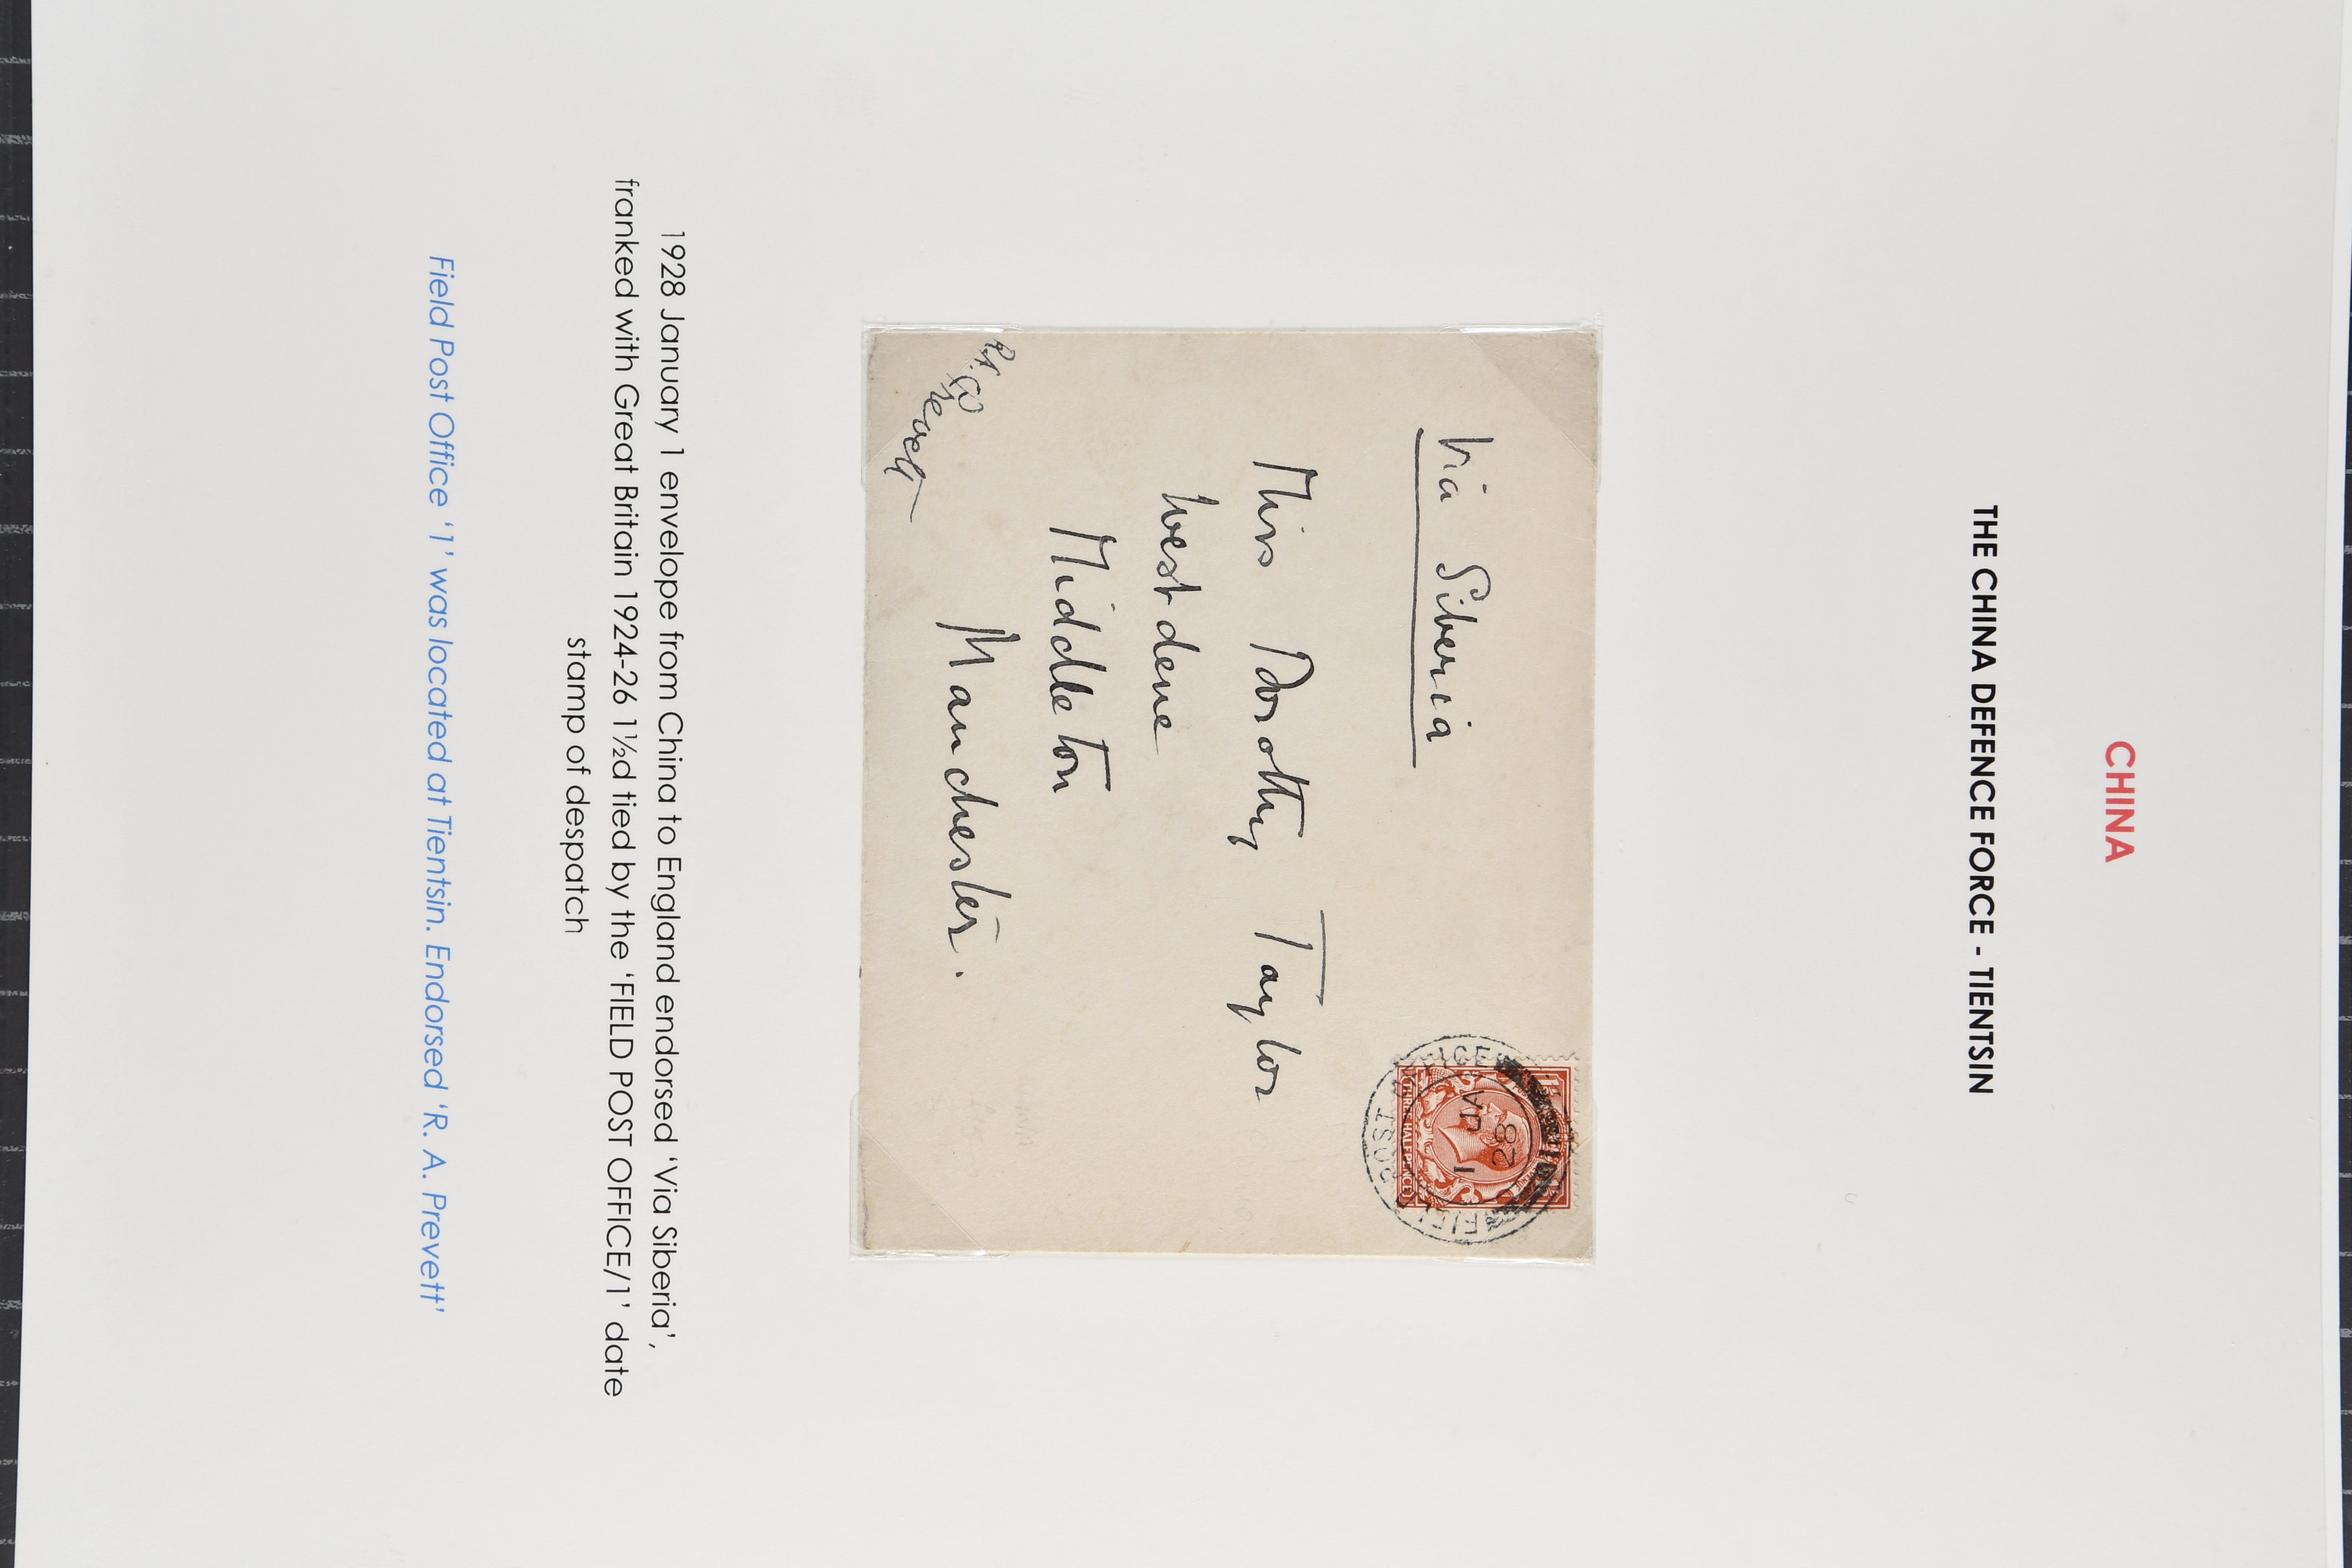 CHINA
THE CHINA DEFENCE FORCE - TIENTSIN
Via Siberia
Miss Dorothy Taylor
Westdene
Middleton
Manchester.
FIELD POST OFFICE
1 JA
28
THREE HALFPENCE
1928 January 1 envelope from China to England endorsed ‘Via Siberia’,
franked with Great Britain 1924-26 1½d tied by the ‘FIELD POST OFFICE/1’ date
stamp of despatch
Field Post Office ‘1’ was located at Tientsin. Endorsed ‘R. A. Prevett’